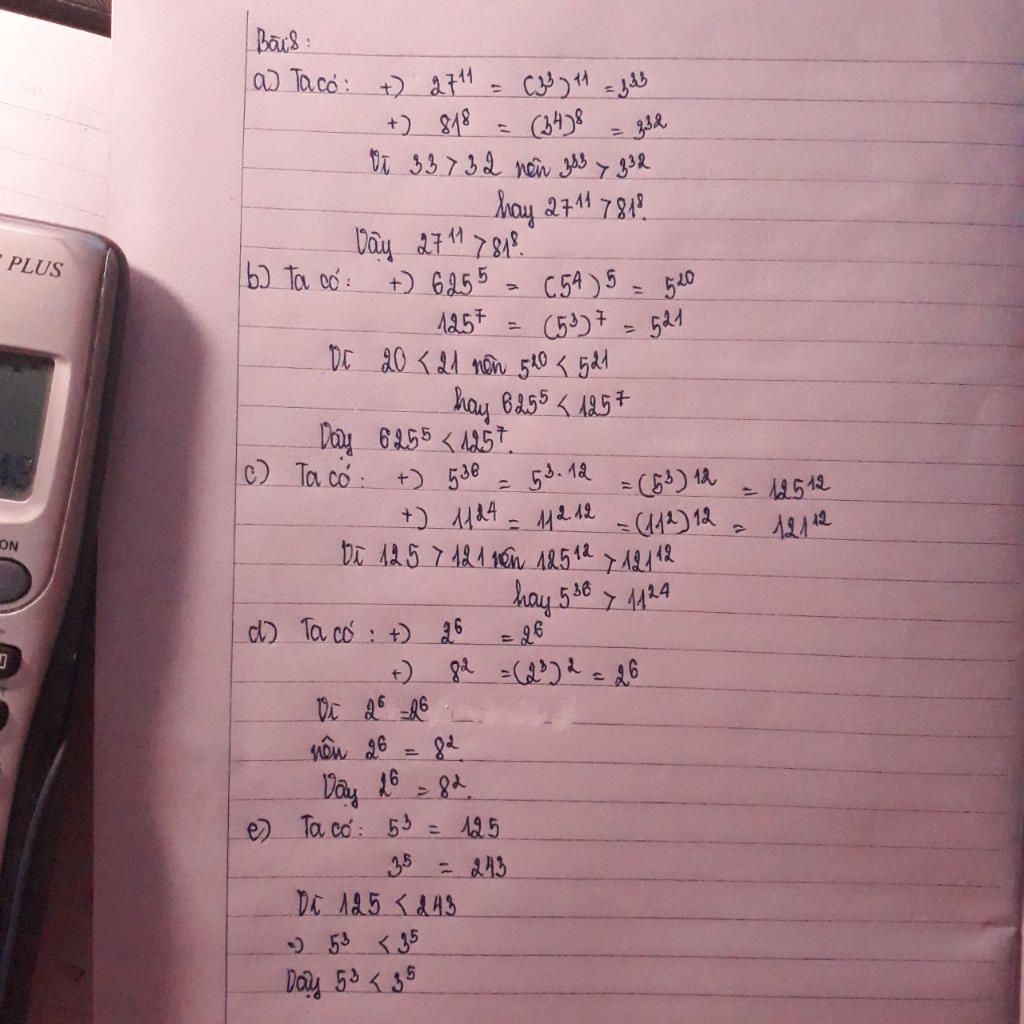 Bài 8:
a) Ta có: +) 27¹¹ = (3³)¹¹ = 3³³
+) 81⁸ = (3⁴)⁸ = 3³²
Vì 33 > 32 nên 3³³ > 3³²
hay 27¹¹ > 81⁸.
Vậy 27¹¹ > 81⁸.
b) Ta có: +) 625⁵ = (5⁴)⁵ = 5²⁰
125⁷ = (5³)⁷ = 5²¹
Vì 20 < 21 nên 5²⁰ < 5²¹
hay 625⁵ < 125⁷
Vậy 625⁵ < 125⁷.
c) Ta có: +) 5³⁶ = 5³·¹² = (5³)¹² = 125¹²
+) 11²⁴ = 11²·¹² = (11²)¹² = 121¹²
Vì 125 > 121 nên 125¹² > 121¹²
hay 5³⁶ > 11²⁴
d) Ta có: +) 2⁶ = 2⁶
+) 8² = (2³)² = 2⁶
Vì 2⁶ = 2⁶
nên 2⁶ = 8².
Vậy 2⁶ = 8².
e) Ta có: 5³ = 125
3⁵ = 243
Vì 125 < 243
=) 5³ < 3⁵
Vậy 5³ < 3⁵
PLUS
ON